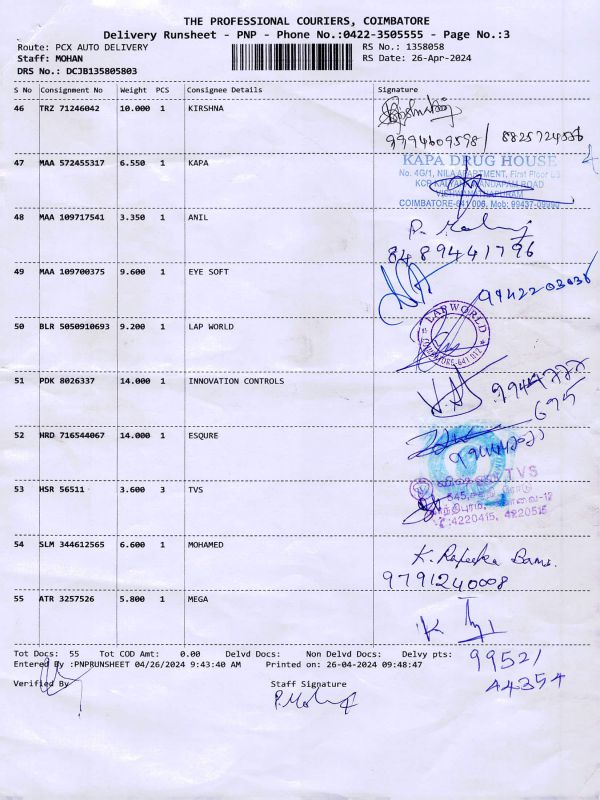 THE PROFESSIONAL COURIERS, COIMBATORE
Delivery Runsheet - PNP - Phone No.:0422-3505555 - Page No.:3
Route: PCX AUTO DELIVERY RS No.: 1358058
Staff: MOHAN RS Date: 26-Apr-2024
DRS No.: DCJB135805803
S No Consignment No Weight PCS Consignee Details Signature
46 TRZ 71246042 10.000 1 KIRSHNA
9994609598 / 8825724556
47 MAA 572455317 6.550 1 KAPA
KAPA DRUG HOUSE
No. 4G/1, NILA APARTMENT, First Floor
COIMBATORE-641 006, Mob: 99437-09990
48 MAA 109717541 3.350 1 ANIL
8489441796
49 MAA 109700375 9.600 1 EYE SOFT
9942203038
50 BLR 5050910693 9.200 1 LAP WORLD
LAP WORLD
COIMBATORE-641 012
51 PDK 8026337 14.000 1 INNOVATION CONTROLS
695
52 HRD 716544067 14.000 1 ESQURE
53 HSR 56511 3.600 3 TVS
TVS
:4220415, 4220515
54 SLM 344612565 6.600 1 MOHAMED
9791240008
55 ATR 3257526 5.800 1 MEGA
Tot Docs: 55 Tot COD Amt: 0.00 Delvd Docs: Non Delvd Docs: Delvy pts:
99521
44354
Entered By :PNPRUNSHEET 04/26/2024 9:43:40 AM Printed on: 26-04-2024 09:48:47
Verified By Staff Signature